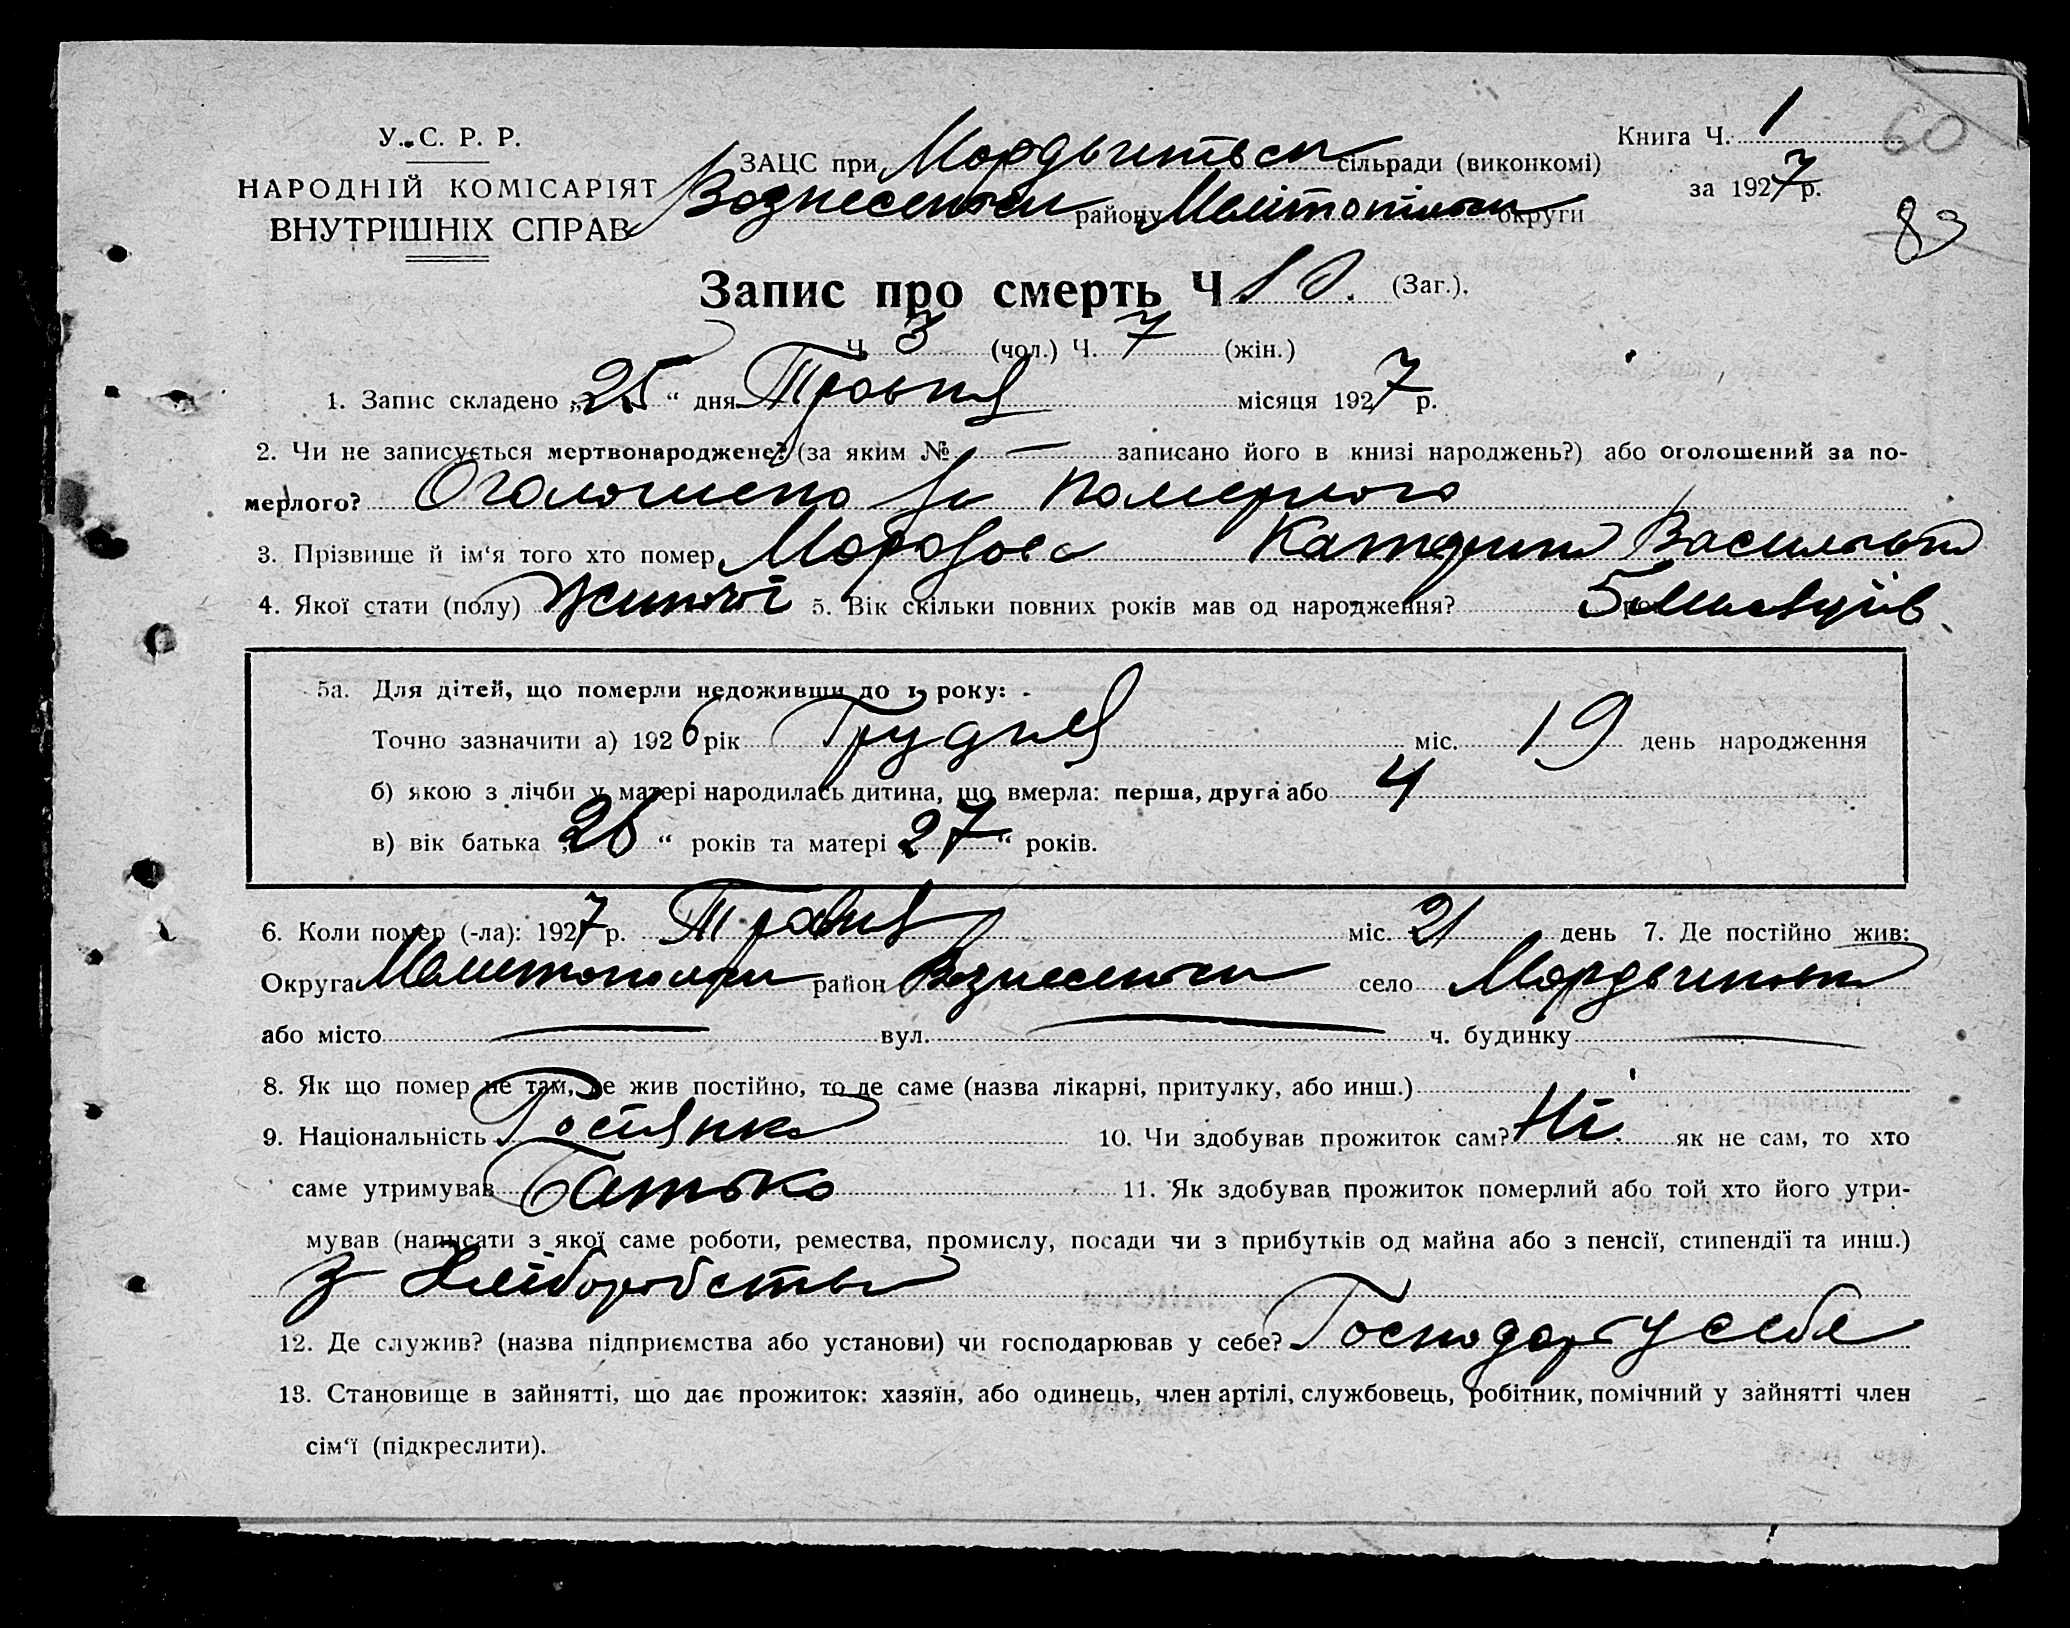 У. С. Р. Р.
НАРОДНІЙ КОМІСАРІЯТ
ВНУТРІШНІХ СПРАВ
Книга Ч. 1
60
за 1927 р.
83
ЗАЦС при сільради (виконкомі)
Вознесенськ району Мелітопільськ округи
Запис про смерть Ч 10. (Заг.).
Ч 3 (чол.) Ч. 7 (жін.)
1. Запис складено „25“ дня Травня місяця 1927 р.
2. Чи не записується мертвонароджене? (за яким № — записано його в книзі народжень?) або оголошений за по-
мерлого? Оголошено за померлого
3. Прізвище й ім‘я того хто помер Морозова Катерина Васильевна
4. Якої стати (полу) Жиночоі 5. Вік скільки повних років мав од народження? 5 місяців
5а. Для дітей, що померли недоживши до 1 року:
Точно зазначити а) 1926 рік Грудня міс. 19 день народження
б) якою з лічби у матері народилась дитина, що вмерла: перша, друга або 4
в) вік батька „26“ років та матері „27“ років.
6. Коли помер (-ла): 1927 р. Травня міс. 21 день 7. Де постійно жив:
Округа район Вознесенськ село
або місто — вул. — ч. будинку —
8. Як що помер не там, де жив постійно, то де саме (назва лікарні, притулку, або инш.)
9. Національність Росіянка 10. Чи здобував прожиток сам? Ні. як не сам, то хто
саме утримував Батько 11. Як здобував прожиток померлий або той хто його утри-
мував (написати з якої саме роботи, ремества, промислу, посади чи з прибутків од майна або з пенсії, стипендії та инш.)
З Хліборобства
12. Де служив? (назва підприємства або установи) чи господарював у себе? Господар у себе
13. Становище в зайнятті, що дає прожиток: хазяїн, або одинець, член артілі, службовець, робітник, помічний у зайнятті член
сім‘ї (підкреслити).